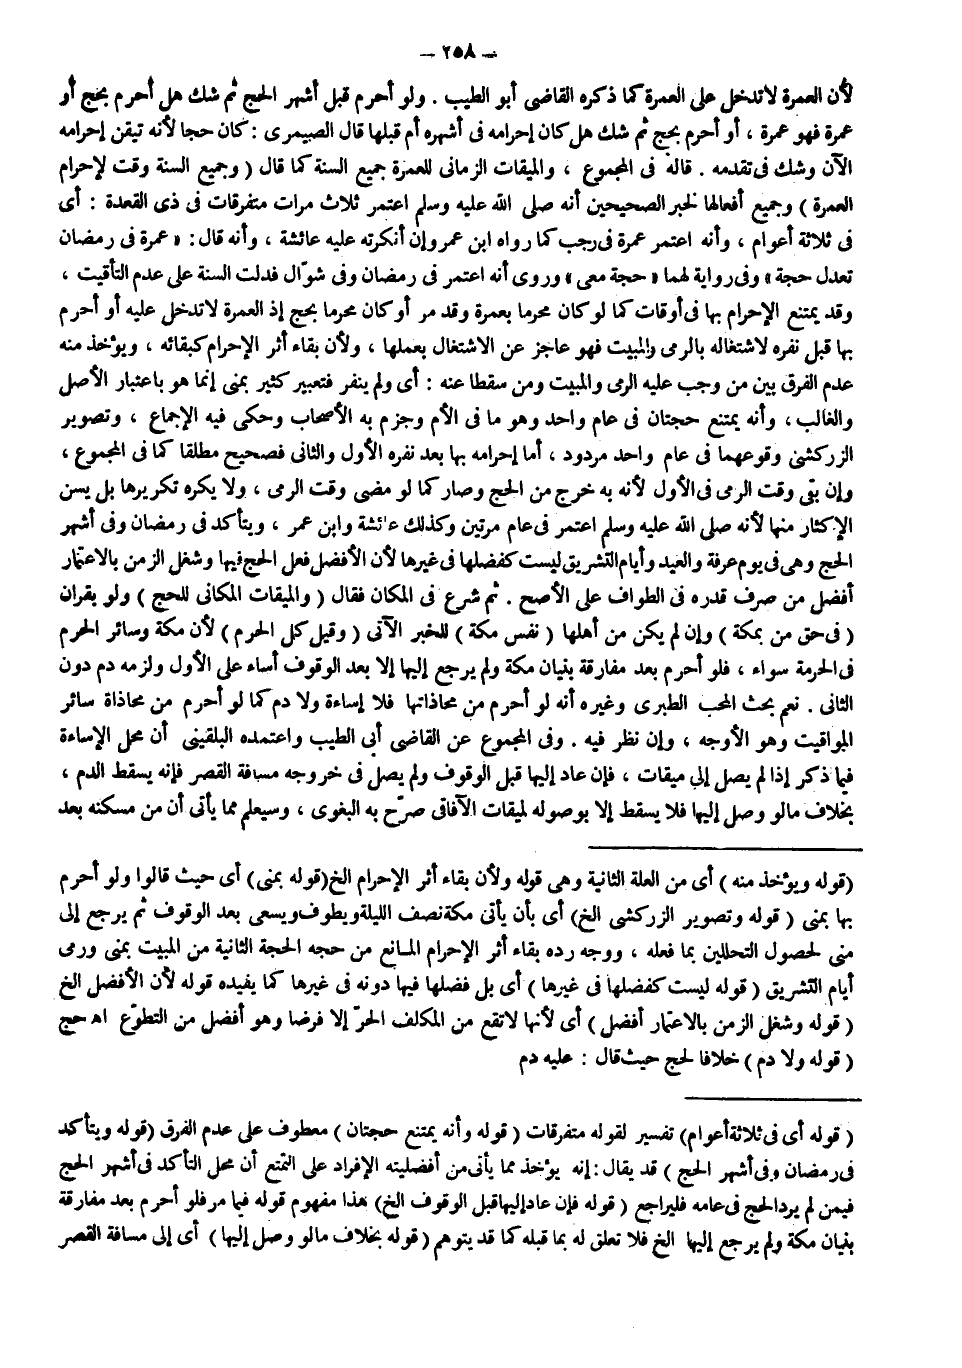 – ٢٥٨ –
لأن العمرة لاتدخل على العمرة كما ذكره القاضى أبو الطيب . ولو أحرم قبل أشهر الحج ثم شك هل أحرم بحج أو
عمرة فهو عمرة ، أو أحرم بحج ثم شك هل كان إحرامه فى أشهره أم قبلها قال الصيمرى : كان حجا لأنه تيقن إحرامه
الآن وشك فى تقدمه . قاله فى المجموع ، والميقات الزمانى للعمرة جميع السنة كما قال ( وجميع السنة وقت لإحرام
العمرة ) وجميع أفعالها لخبر الصحيحين أنه صلى الله عليه وسلم اعتمر ثلاث مرات متفرقات فى ذى القعدة : أى
فى ثلاثة أعوام ، وأنه اعتمر عمرة فى رجب كما رواه ابن عمر وإن أنكرته عليه عائشة ، وأنه قال : « عمرة فى رمضان
تعدل حجة » وفى رواية لهما « حجة معى » وروى أنه اعتمر فى رمضان وفى شوّال فدلت السنة على عدم التأقيت ،
وقد يمتنع الإحرام بها فى أوقات كما لو كان محرما بعمرة وقد مر أو كان محرما بحج إذ العمرة لاتدخل عليه أو أحرم
بها قبل نفره لاشتغاله بالرمى والمبيت فهو عاجز عن الاشتغال بعملها ، ولأن بقاء أثر الإحرام كبقائه ، ويؤخذ منه
عدم الفرق بين من وجب عليه الرمى والمبيت ومن سقطا عنه : أى ولم ينفر فتعبير كثير بمنى إنما هو باعتبار الأصل
والغالب ، وأنه يمتنع حجتان فى عام واحد وهو ما فى الأم وجزم به الأصحاب وحكى فيه الإجماع ، وتصوير
الزركشى وقوعهما فى عام واحد مردود ، أما إحرامه بها بعد نفره الأول والثانى فصحيح مطلقا كما فى المجموع ،
وإن بقى وقت الرمى فى الأول لأنه به خرج من الحج وصار كما لو مضى وقت الرمى ، ولا يكره تكريرها بل يسن
الإكثار منها لأنه صلى الله عليه وسلم اعتمر فى عام مرتين وكذلك عائشة وابن عمر ، ويتأكد فى رمضان وفى أشهر
الحج وهى فى يوم عرفة والعيد وأيام التشريق ليست كفضلها فى غيرها لأن الأفضل فعل الحج فيها وشغل الزمن بالاعتمار
أفضل من صرف قدره فى الطواف على الأصح . ثم شرع فى المكان فقال ( والميقات المكانى للحج ) ولو بقران
( فى حق من بمكة ) وإن لم يكن من أهلها ( نفس مكة ) للخبر الآتى ( وقيل كل الحرم ) لأن مكة وسائر الحرم
فى الحرمة سواء ، فلو أحرم بعد مفارقة بنيان مكة ولم يرجع إليها إلا بعد الوقوف أساء على الأول ولزمه دم دون
الثانى . نعم بحث المحب الطبرى وغيره أنه لو أحرم من محاذاتها فلا إساءة ولا دم كما لو أحرم من محاذاة سائر
المواقيت وهو الأوجه ، وإن نظر فيه . وفى المجموع عن القاضى أبى الطيب واعتمده البلقينى أن محل الإساءة
فيما ذكر إذا لم يصل إلى ميقات ، فإن عاد إليها قبل الوقوف ولم يصل فى خروجه مسافة القصر فإنه يسقط الدم ،
بخلاف مالو وصل إليها فلا يسقط إلا بوصوله لميقات الآفاقى صرّح به البغوى ، وسيعلم مما يأتى أن من مسكنه بعد
(قوله ويؤخذ منه ) أى من العلة الثانية وهى قوله ولأن بقاء أثر الإحرام الخ(قوله بمنى) أى حيث قالوا ولو أحرم
بها بمنى ( قوله وتصوير الزركشى الخ) أى بأن يأتى مكة نصف الليلة ويطوف ويسعى بعد الوقوف ثم يرجع إلى
منى لحصول التحللين بما فعله ، ووجه رده بقاء أثر الإحرام المانع من حجه الحجة الثانية من المبيت بمنى ورمى
أيام التشريق ( قوله ليست كفضلها فى غيرها ) أى بل فضلها فيها دونه فى غيرها كما يفيده قوله لأن الأفضل الخ
( قوله وشغل الزمن بالاعتمار أفضل ) أى لأنها لاتقع من المكلف الحرّ إلا فرضا وهو أفضل من التطوّع اه حج
( قوله ولا دم ) خلافا لحج حيث قال : عليه دم
( قوله أى فى ثلاثة أعوام) تفسير لقوله متفرقات ( قوله وأنه يمتنع حجتان ) معطوف على عدم الفرق (قوله ويتأكد
فى رمضان وفى أشهر الحج ) قد يقال : إنه يؤخذ مما يأتى من أفضليته الإفراد على التمتع أن محل التأكد فى أشهر الحج
فيمن لم يرد الحج فى عامه فليراجع ( قوله فإن عاد إليها قبل الوقوف الخ) هذا مفهوم قوله فيما مر فلو أحرم بعد مفارقة
بنيان مكة ولم يرجع إليها الخ فلا تعلق له بما قبله كما قد يتوهم (قوله بخلاف مالو وصل إليها ) أى إلى مسافة القصر